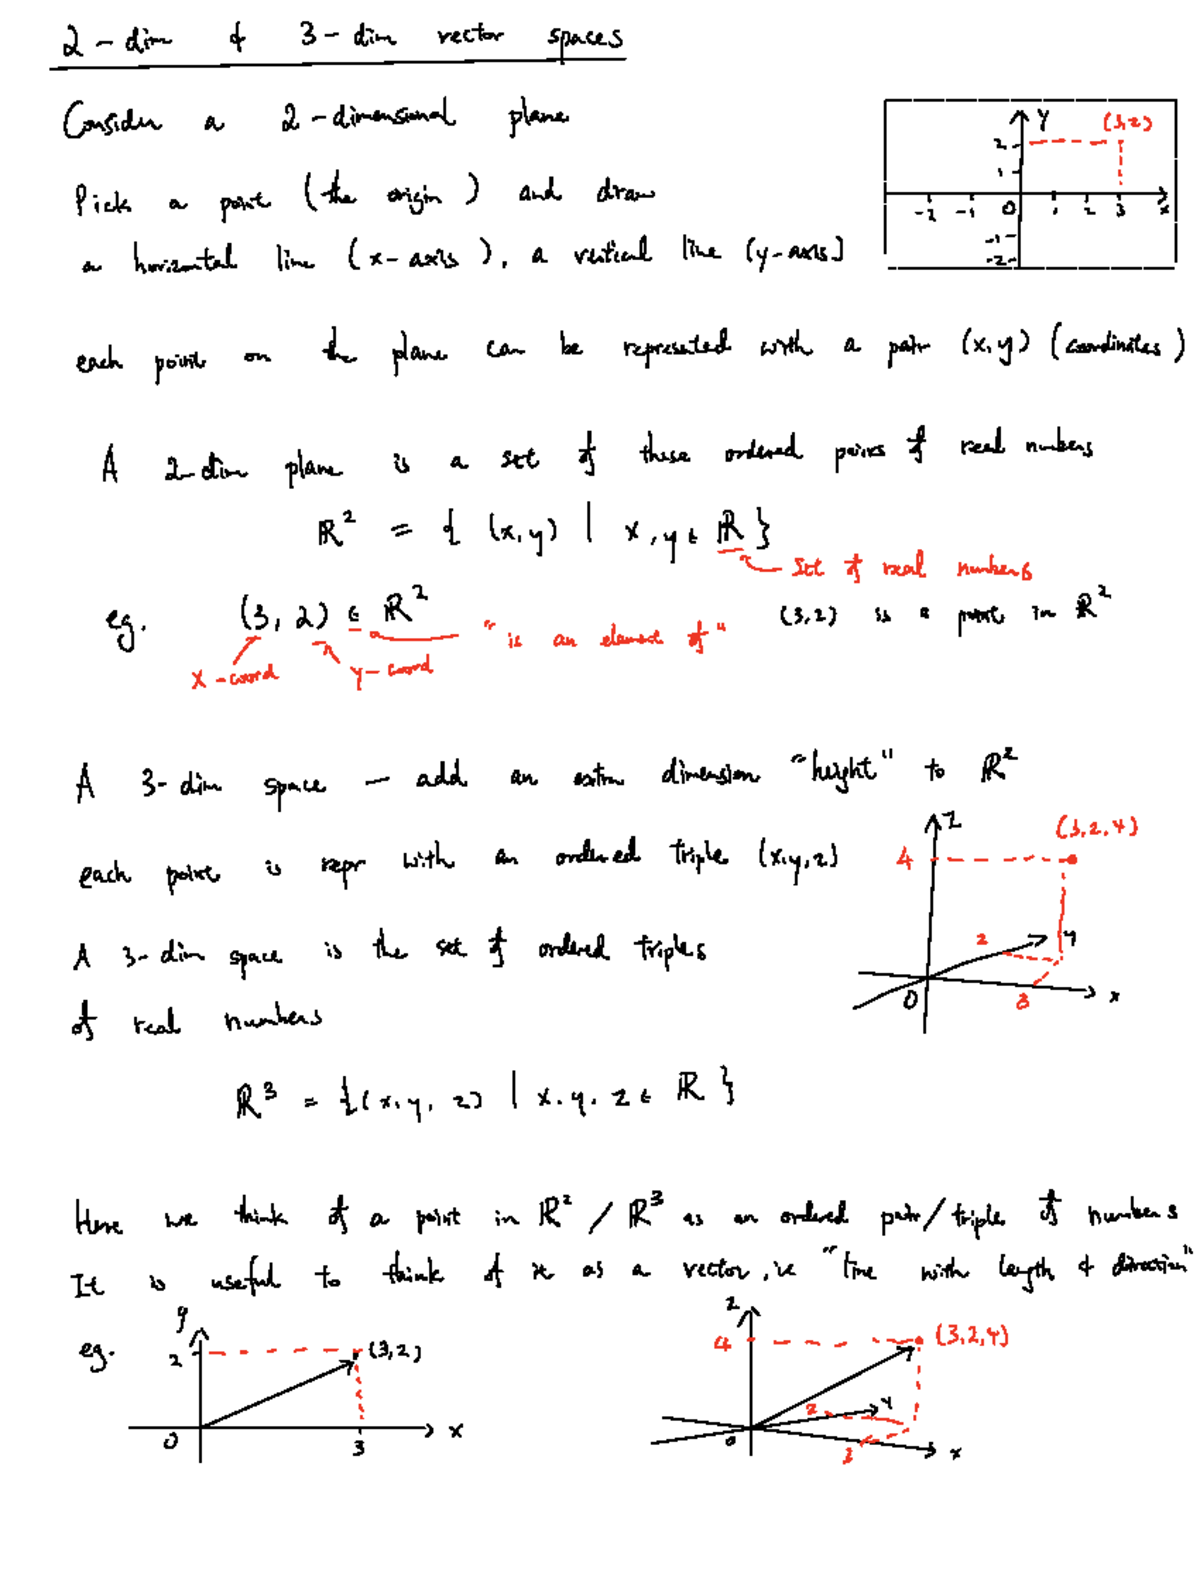 2-dim & 3-dim vector spaces
Consider a 2-dimensional plane
Y (3,2)
2
1
-2 -1 0 1 2 3 x
-1
-2
Pick a point (the origin) and draw
a horizontal line (x-axis), a vertical line (y-axis)
each point on the plane can be represented with a pair (x,y) (coordinates)
A 2-dim plane is a set of these ordered pairs of real numbers
ℝ² = { (x,y) | x,y ∈ ℝ }
set of real numbers
eg. (3, 2) ∈ ℝ² "is an element of" (3,2) is a point in ℝ²
x-coord y-coord
A 3-dim space — add an extra dimension "height" to ℝ²
each point is repr with an ordered triple (x,y,z)
A 3-dim space is the set of ordered triples
of real numbers
z (3,2,4)
4
2 y
0 3 x
ℝ³ = {(x,y,z) | x,y,z ∈ ℝ }
Here we think of a point in ℝ² / ℝ³ as an ordered pair/triple of numbers
It is useful to think of it as a vector, ie "line with length & direction"
eg.
y
2 (3,2)
0 3 x
z
4 (3,2,4)
2 y
0 3 x